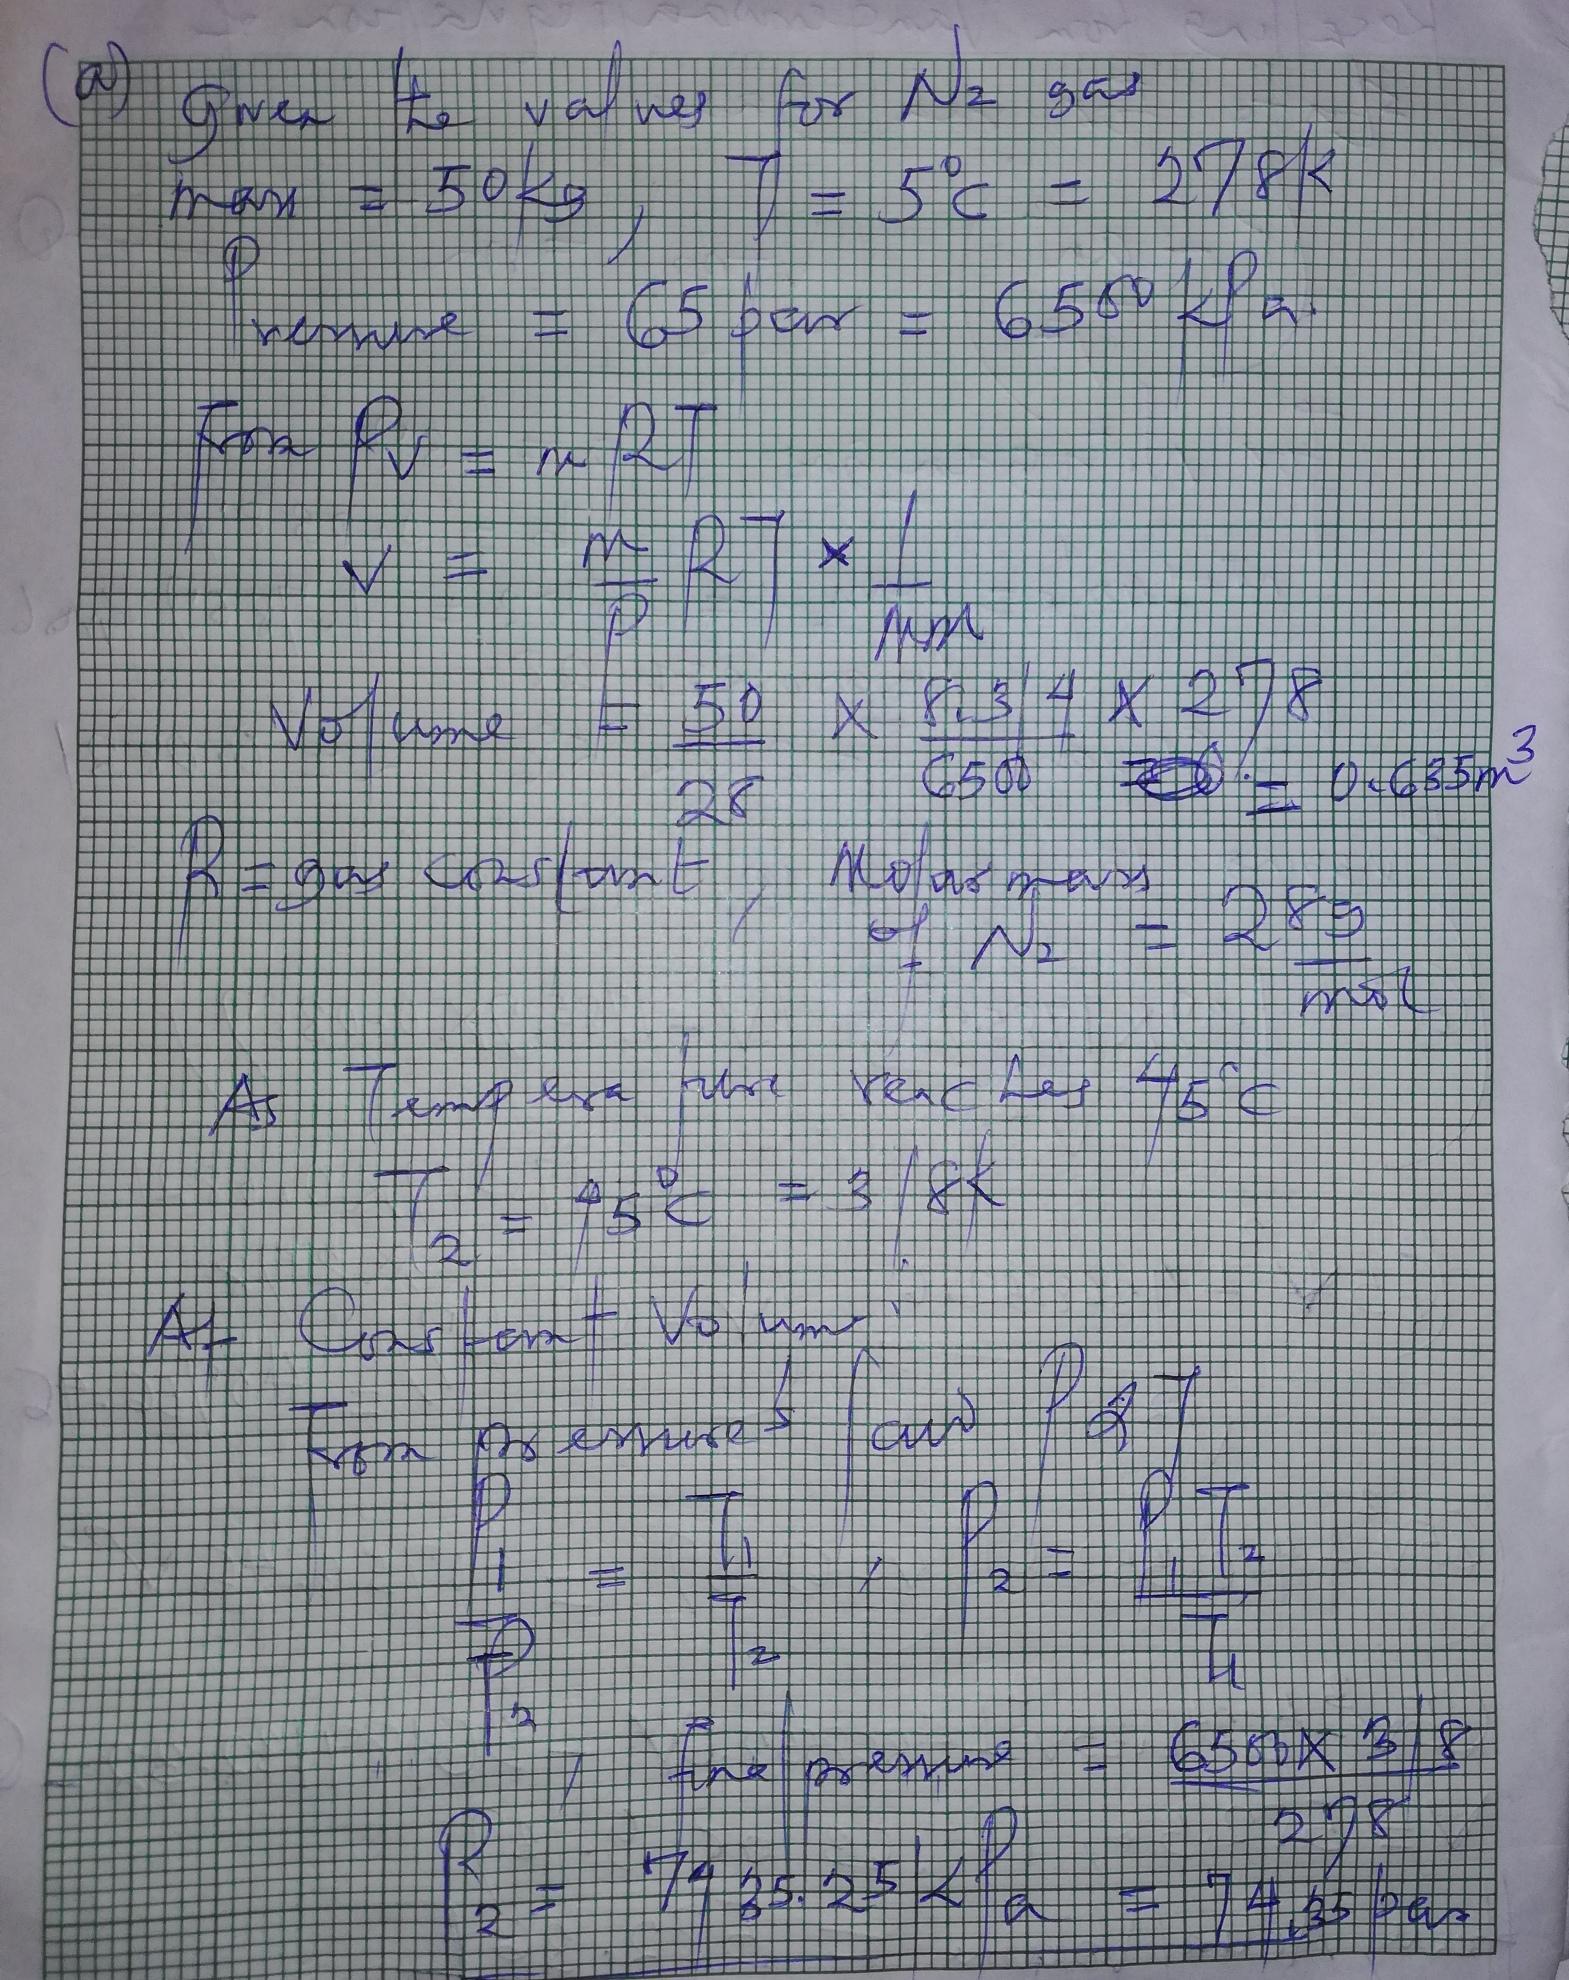 (a) Given the values for N2 gas
mass = 50kg, T = 5°C = 278K
Pressure = 65 bar = 6500 kPa.
From PV = nRT
V = m/P RT × 1/Mm
Volume = 50/28 × 8.314 × 278/6500 = 0.635m³
R = gas constant, Molar mass
of N2 = 28g/mol
As Temperature reaches 45°C
T2 = 45°C = 318K
At Constant Volum
From pressures law P α T
P1/P2 = T1/T2, P2 = P1T2/T1
, final pressure = 6500 × 318/278
P2 = 7435.25 kPa = 74.35 bar